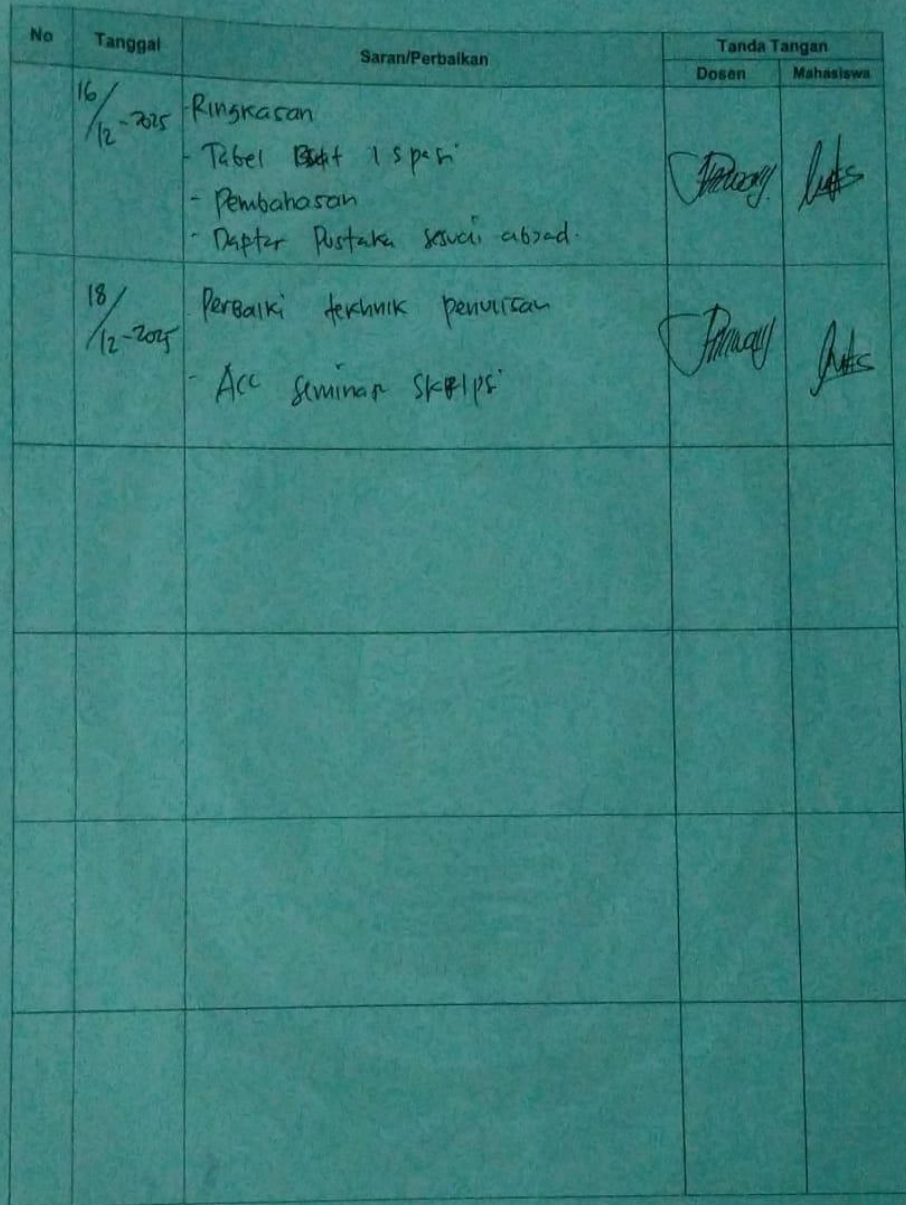 No Tanggal Saran/Perbaikan Tanda Tangan
Dosen Mahasiswa
16/12-2025
- Ringkasan
- Tabel 1 spasi
- Pembahasan
- Daptar Pustaka sesuai abjad.
18/12-2025
Perbaiki tekhnik penulisan
- Acc seminar skripsi